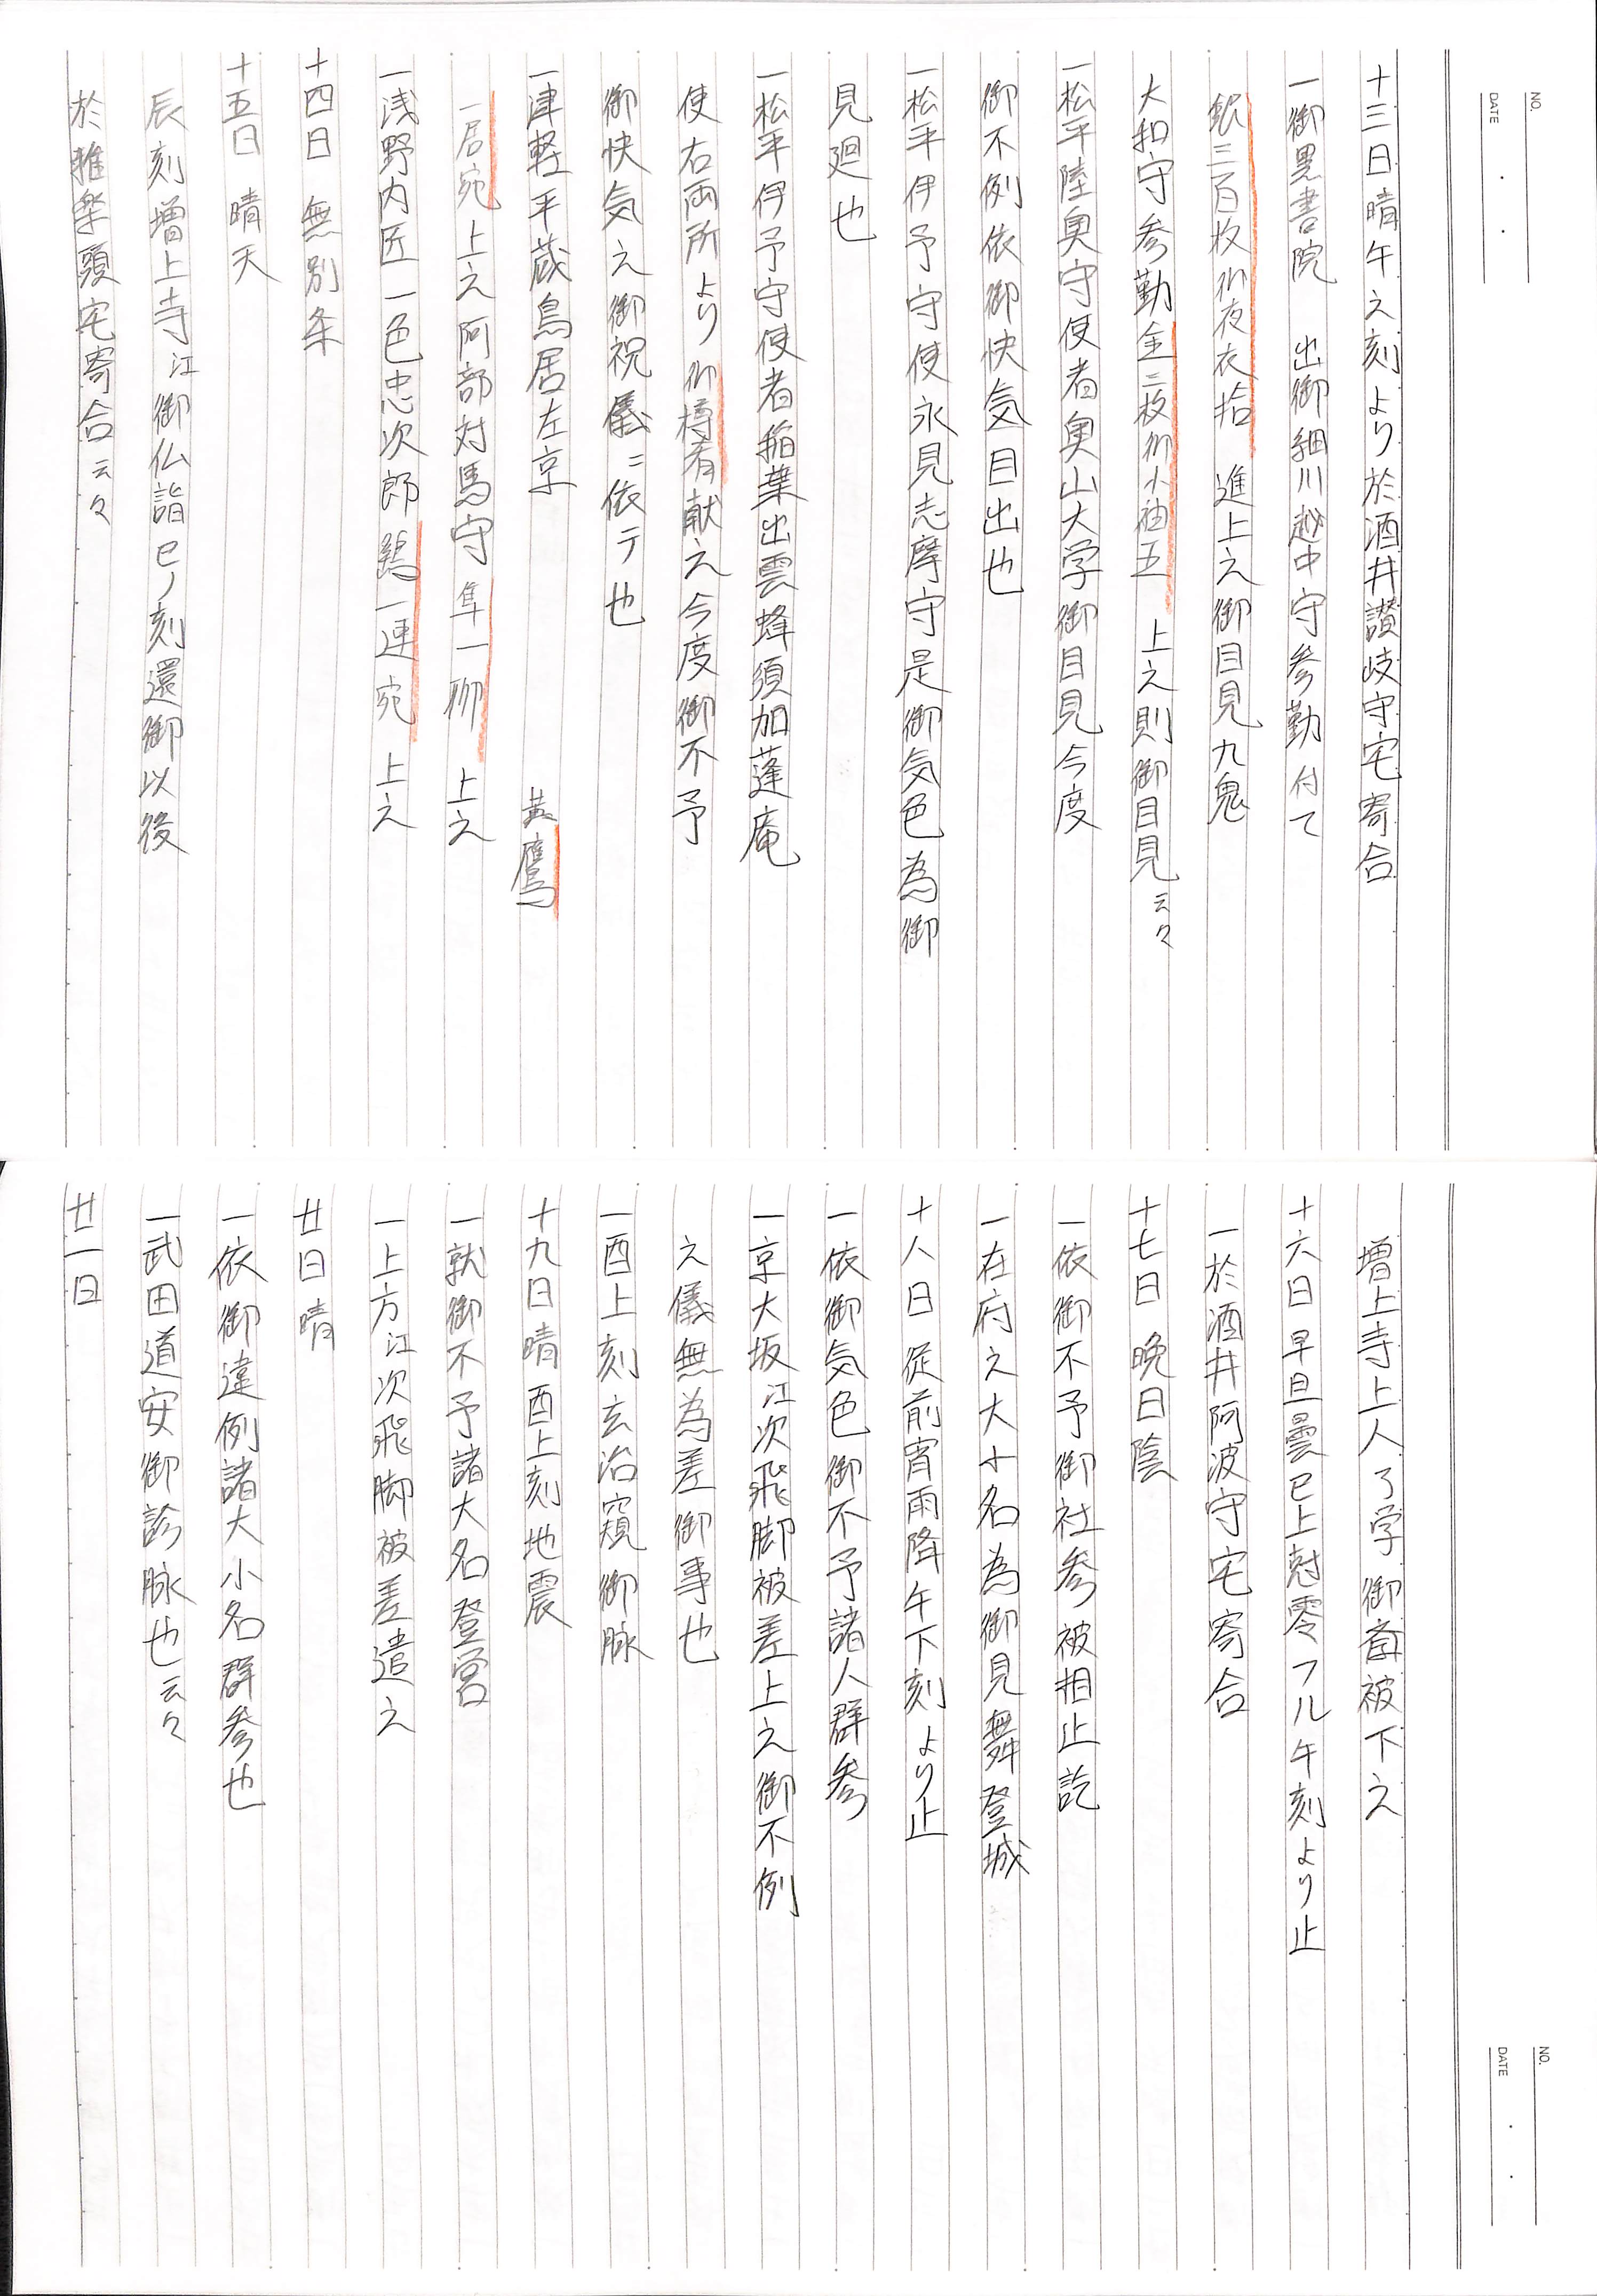 NO.
DATE
十三日晴午之刻より於酒井讃岐守宅寄合
一御黒書院 出御細川越中守参勤付て
銀三百枚御夜衣拾 進上之御目見九鬼
大和守参勤金二枚御小袖五 上之則御目見云々
一松平陸奥守使者奥山大学御目見今度
御不例依御快気目出也
一松平伊予守使永見志摩守是御気色為御
見廻也
一松平伊予守使者稲葉出雲蜂須加蓬庵
使右両所より御樽肴献之今度御不予
御快気之御祝儀ニ依テ也
一津軽平蔵鳥居左京 黄鷹
一居宛上之阿部対馬守隼一聯 上之
一浅野内匠一色忠次郎鶉一連宛 上之
十四日 無別条
十五日 晴天
辰刻増上寺江御仏詣巳ノ刻還御以後
於雅楽頭宅寄合云々
NO.
DATE
増上寺上人了学御斎被下之
十六日早旦曇巳上尅零フル午刻より止
一於酒井阿波守宅寄合
十七日 晩日陰
一依御不予御社参被相止訖
一在府之大小名為御見舞登城
十八日従前宵雨降午下刻より止
一依御気色御不予諸人群参
一京大坂江次飛脚被差上之御不例
之儀無為差御事也
一酉上刻玄治窺御脉
十九日晴酉上刻地震
一就御不予諸大名登営
一上方江次飛脚被差遣之
廿日晴
一依御違例諸大小名群参也
一武田道安御診脉也云々
廿一日